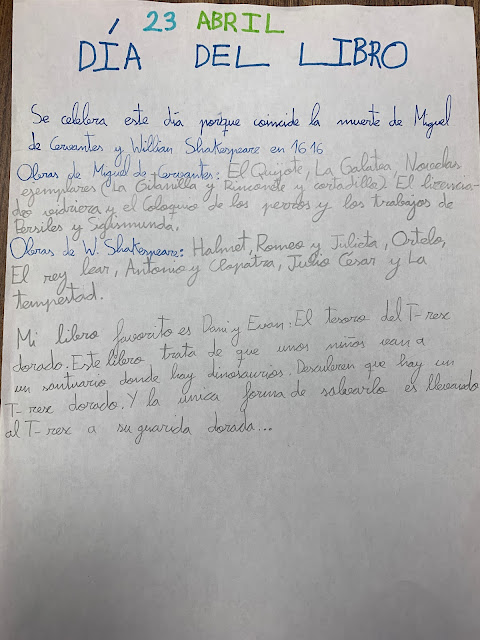 23 ABRIL
DÍA DEL LIBRO
Se celebra este día porque coincide la muerte de Miguel
de Cervantes y Willian Shakespeare en 1616
Obras de Miguel de Cervantes: El Quijote, La Galatea, Novelas
ejemplares (La Gitanilla y Rinconete y cortadillo) El licencia-
do vidriera y el Coloquio de los perros y los trabajos de
Persiles y Sajismunda.
Obras de W. Shakespeare: Halmet, Romeo y Julieta, Ortelo,
El rey lear, Antonio y Cleopatra, Julio César y La
tempestad.
Mi libro favorito es Dani y Evan: El tesoro del T-rex
dorado. Este libro trata de que unos niños van a
un santuario donde hay dinosaurios. Descubren que hay un
T-rex dorado. Y la única forma de salvarlo es llevando
al T-rex a su guarida dorada...